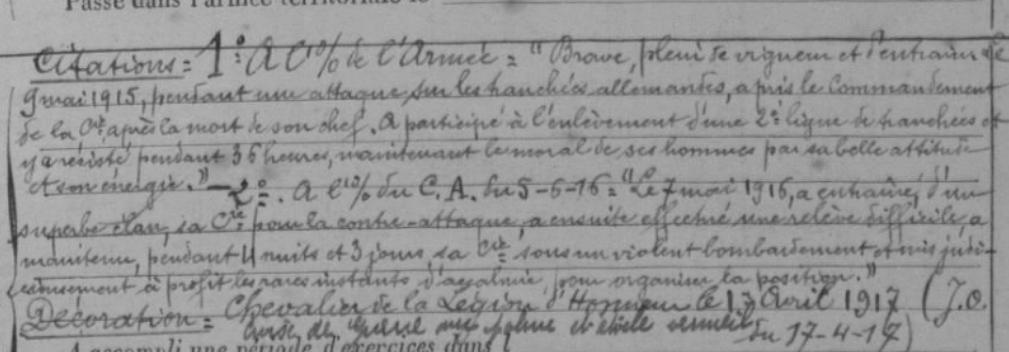 Passé dans l'armée territoriale le
Citations = 1º: A l'O/ de l'Armée = "Brave, plein de vigueur et d'entrain. Le
9 mai 1915, pendant une attaque sur les tranchées allemandes, a pris le Commandement
de la Cie après la mort de son chef. A participé à l'enlèvement d'une 2e ligne de tranchées et
y a résisté pendant 36 heures, maintenant le moral de ses hommes par sa belle attitude
et son énergie." - 2º. A l'O/ du C.A. du 5-6-16 = "Le 7 mai 1916, a entraîné, d'un
superbe élan, sa Cie pour la contre-attaque, a ensuite effectué une relève difficile, a
maintenu, pendant 4 nuits et 3 jours, sa Cie sous un violent bombardement et mis judi-
cieusement à profit les rares instants d'accalmie, pour organiser la position."
Décoration = Chevalier de la Légion d'Honneur le 13 Avril 1917 (J.O.
Croix de Guerre avec palme et étoile vermeil du 17-4-17)
A accompli une période d'exercices dans l